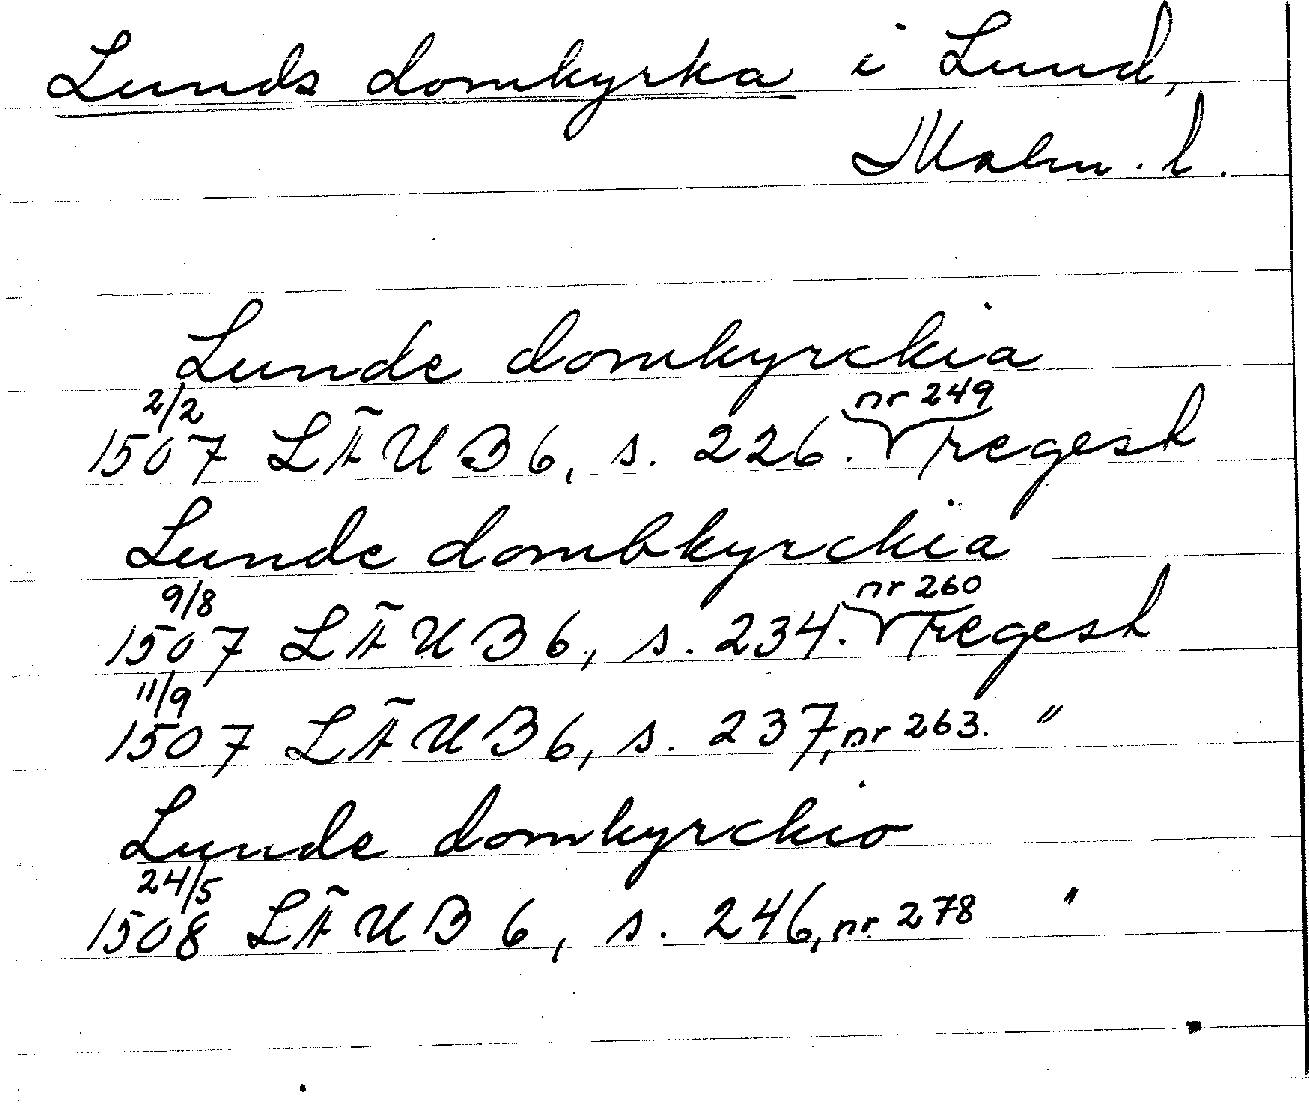 Lunds domkyrka i Lund,
Malm. l.
Lunde domkyrckia
2/2 nr 249
1507 LÄUB 6, s. 226. regest
Lunde dombkyrckia
9/8 nr 260
1507 LÄUB 6, s. 234. regest
11/9
1507 LÄUB 6, s. 237, nr 263. "
Lunde domkyrckio
24/5
1508 LÄUB 6, s. 246, nr. 278 "